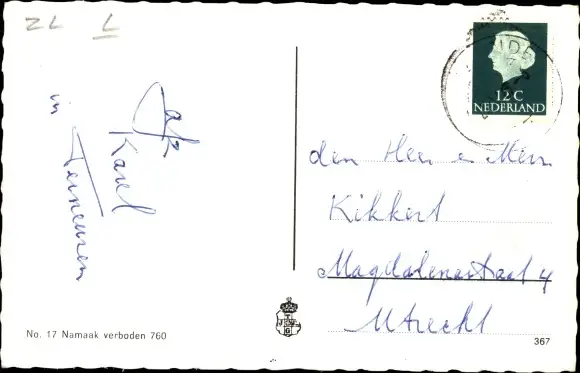 ZL L
12 C
NEDERLAND
Karel
in Terneuzen
den Heer e Mevr
Kikkert
Magdalenastraat 4
Utrecht
No. 17 Namaak verboden 760
367